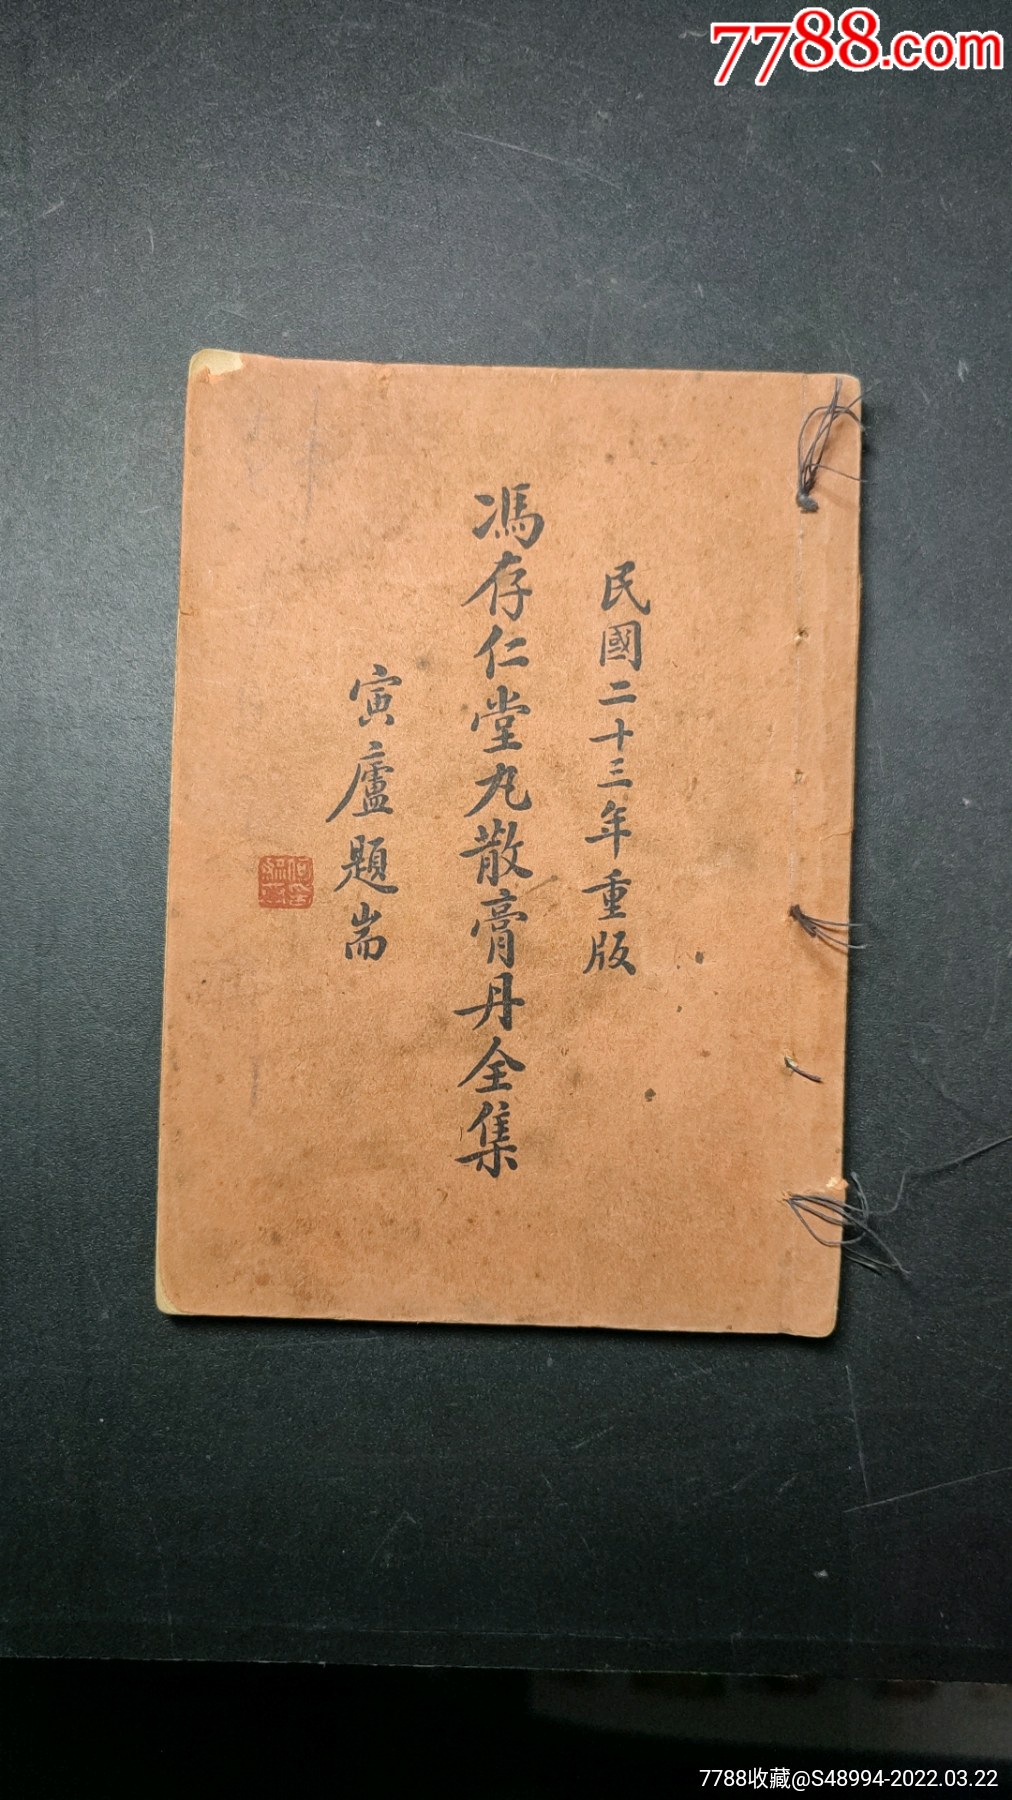 7788.com
民國二十三年重版
馮存仁堂丸散膏丹全集
寅廬題耑
7788收藏@S48994-2022.03.22